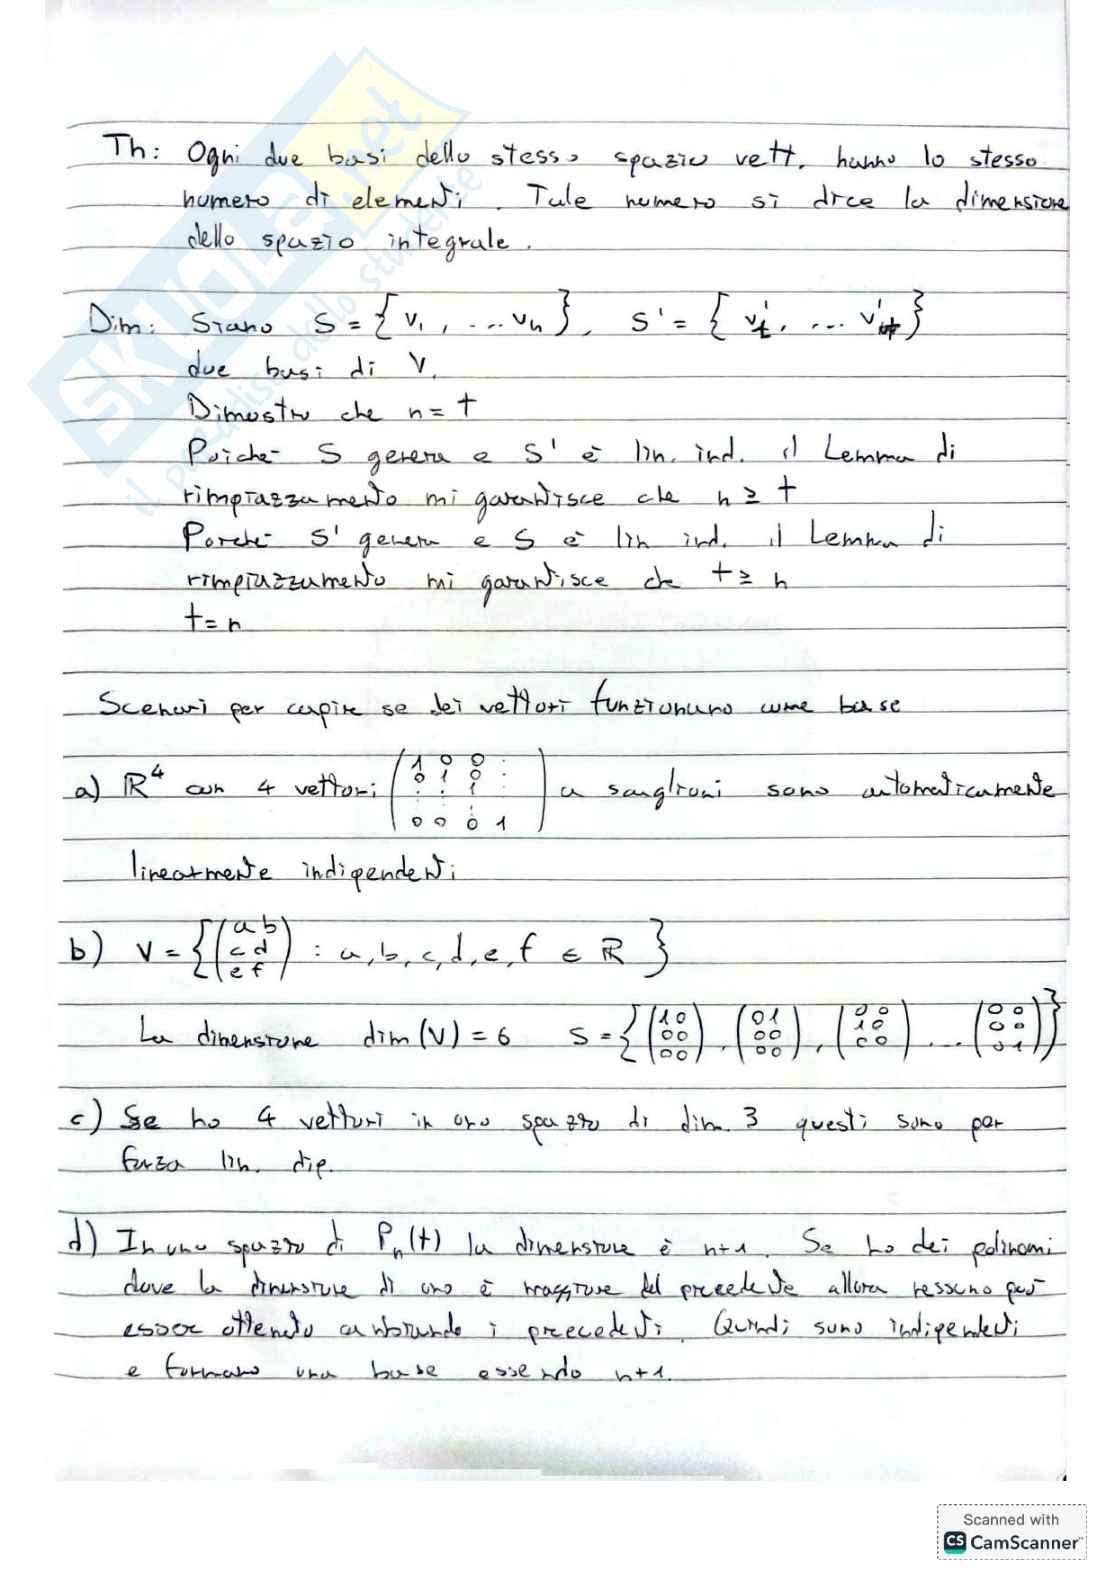 SKUOLA.net
il paradiso dello studente
Th: Ogni due basi dello stesso spazio vett. hanno lo stesso
numero di elementi. Tale numero si dice la dimensione
dello spazio integrale.
Dim: Siano S = { v₁, ... vₙ }, S' = { v'₁, ... v'ₜ }
due basi di V.
Dimostro che n = t
Poiché S genera e S' è lin. ind. il Lemma di
rimpiazzamento mi garantisce che n ≥ t
Poiché S' genera e S è lin ind. il Lemma di
rimpiazzamento mi garantisce che t ≥ n
t = n
Scenari per capire se dei vettori funzionano come base
a) ℝ⁴ con 4 vettori (1 0 0 · / 0 1 0 · / · · 1 · / 0 0 0 1) a scaglioni sono automaticamente
linearmente indipendenti
b) V = { (a b / c d / e f) : a, b, c, d, e, f ∈ ℝ }
La dimensione dim(V) = 6 S = { (1 0 / 0 0 / 0 0), (0 1 / 0 0 / 0 0), (0 0 / 1 0 / 0 0), ... (0 0 / 0 0 / 0 1) }
c) Se ho 4 vettori in uno spazio di dim. 3 questi sono per
forza lin. dip.
d) In uno spazio di Pₙ(t) la dimensione è n+1. Se ho dei polinomi
dove la dimensione di uno è maggiore del precedente allora nessuno può
essere ottenuto cambiando i precedenti. Quindi sono indipendenti
e formano una base essendo n+1.
Scanned with
CS CamScanner